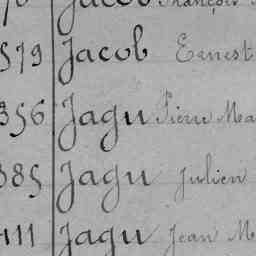 Jacob François
579 Jacob Ernest
356 Jagu Pierre Ma
385 Jagu Julien
111 Jagu Jean M